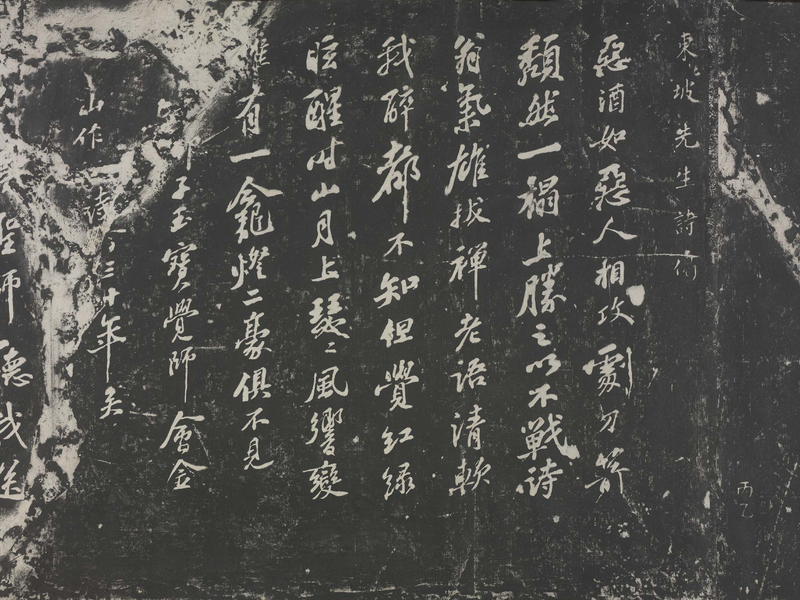 東坡先生詩
惡酒如惡人相攻劇刀箭
頹然一榻上勝之以不戰詩
翁氣雄拔禪老語清軟
我醉都不知但覺紅綠
眩醒時山月上瑟々風響變
惟有一龕燈二豪俱不見
子玉寶覺師會金
山作 詩今三十年矣
聖師
丙乙